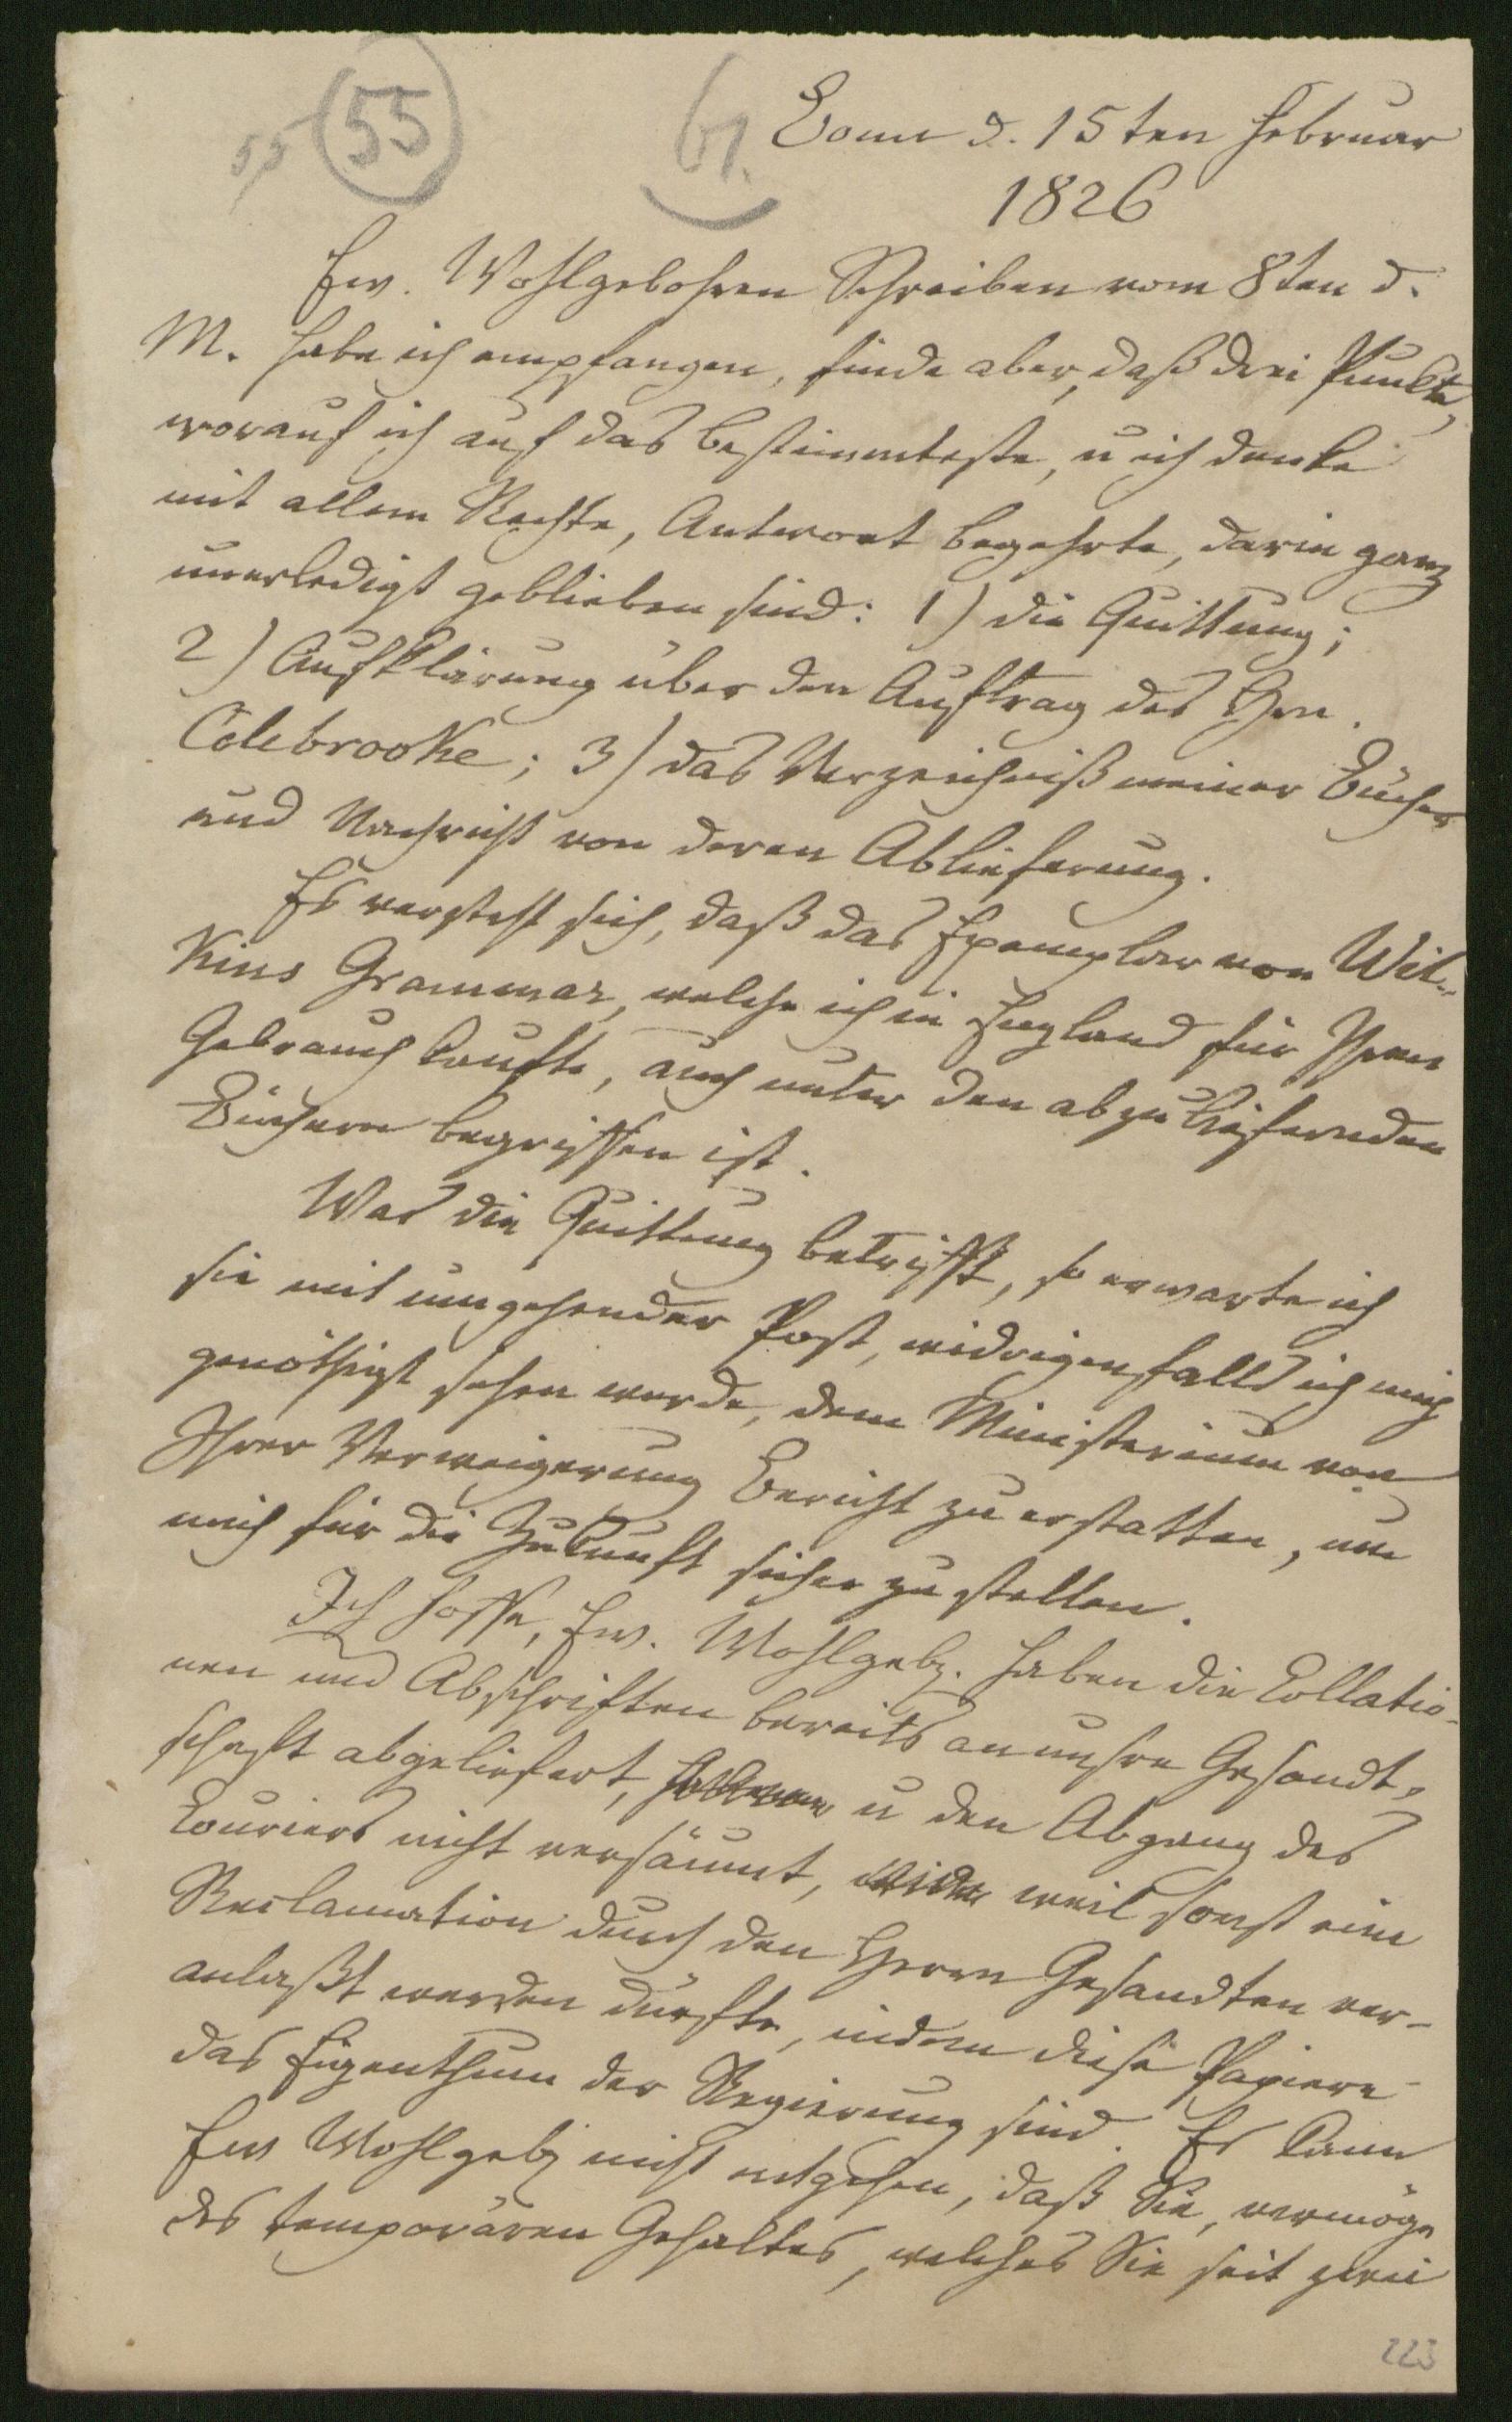 55 (55) 61.
Bonn d. 15ten Februar
1826
Ew. Wohlgebohren Schreiben vom 8ten d.
M. habe ich empfangen, finde aber, daß drei Punkte,
worauf ich auf das bestimmteste, u ich denke
mit allem Rechte, Antwort begehrte, darin ganz
unerledigt geblieben sind: 1) die Quittung;
2) Aufklärung über den Auftrag des Hrn.
Colebrooke; 3) das Verzeichniß meiner Bücher
und Nachricht von deren Ablieferung.
Es versteht sich, daß das Exemplar von Wil-
kins Grammar, welche ich in England für Ihren
Gebrauch kaufte, auch unter den abzuliefernden
Büchern begriffen ist.
Was die Quittung betrifft, so erwarte ich
sie mit umgehender Post, widrigenfalls ich mich
genöthigt sehen werde, dem Ministerium von
Ihrer Verweigerung Bericht zu erstatten, um
mich für die Zukunft sicher zu stellen.
Ich hoffe, Ew. Wohlgeb. haben die Collatio-
nen und Abschriften bereits an unsre Gesandt-
schaft abgeliefert, u den Abgang des
Couriers nicht versäumt, weil sonst eine
Reclamation durch den Herrn Gesandten ver-
anlaßt werden dürfte, indem diese Papiere
das Eigenthum der Regierung sind. Es kann
Ew Wohlgeb nicht entgehen, daß Sie, vermöge
des temporären Gehaltes, welches Sie seit zwei
223